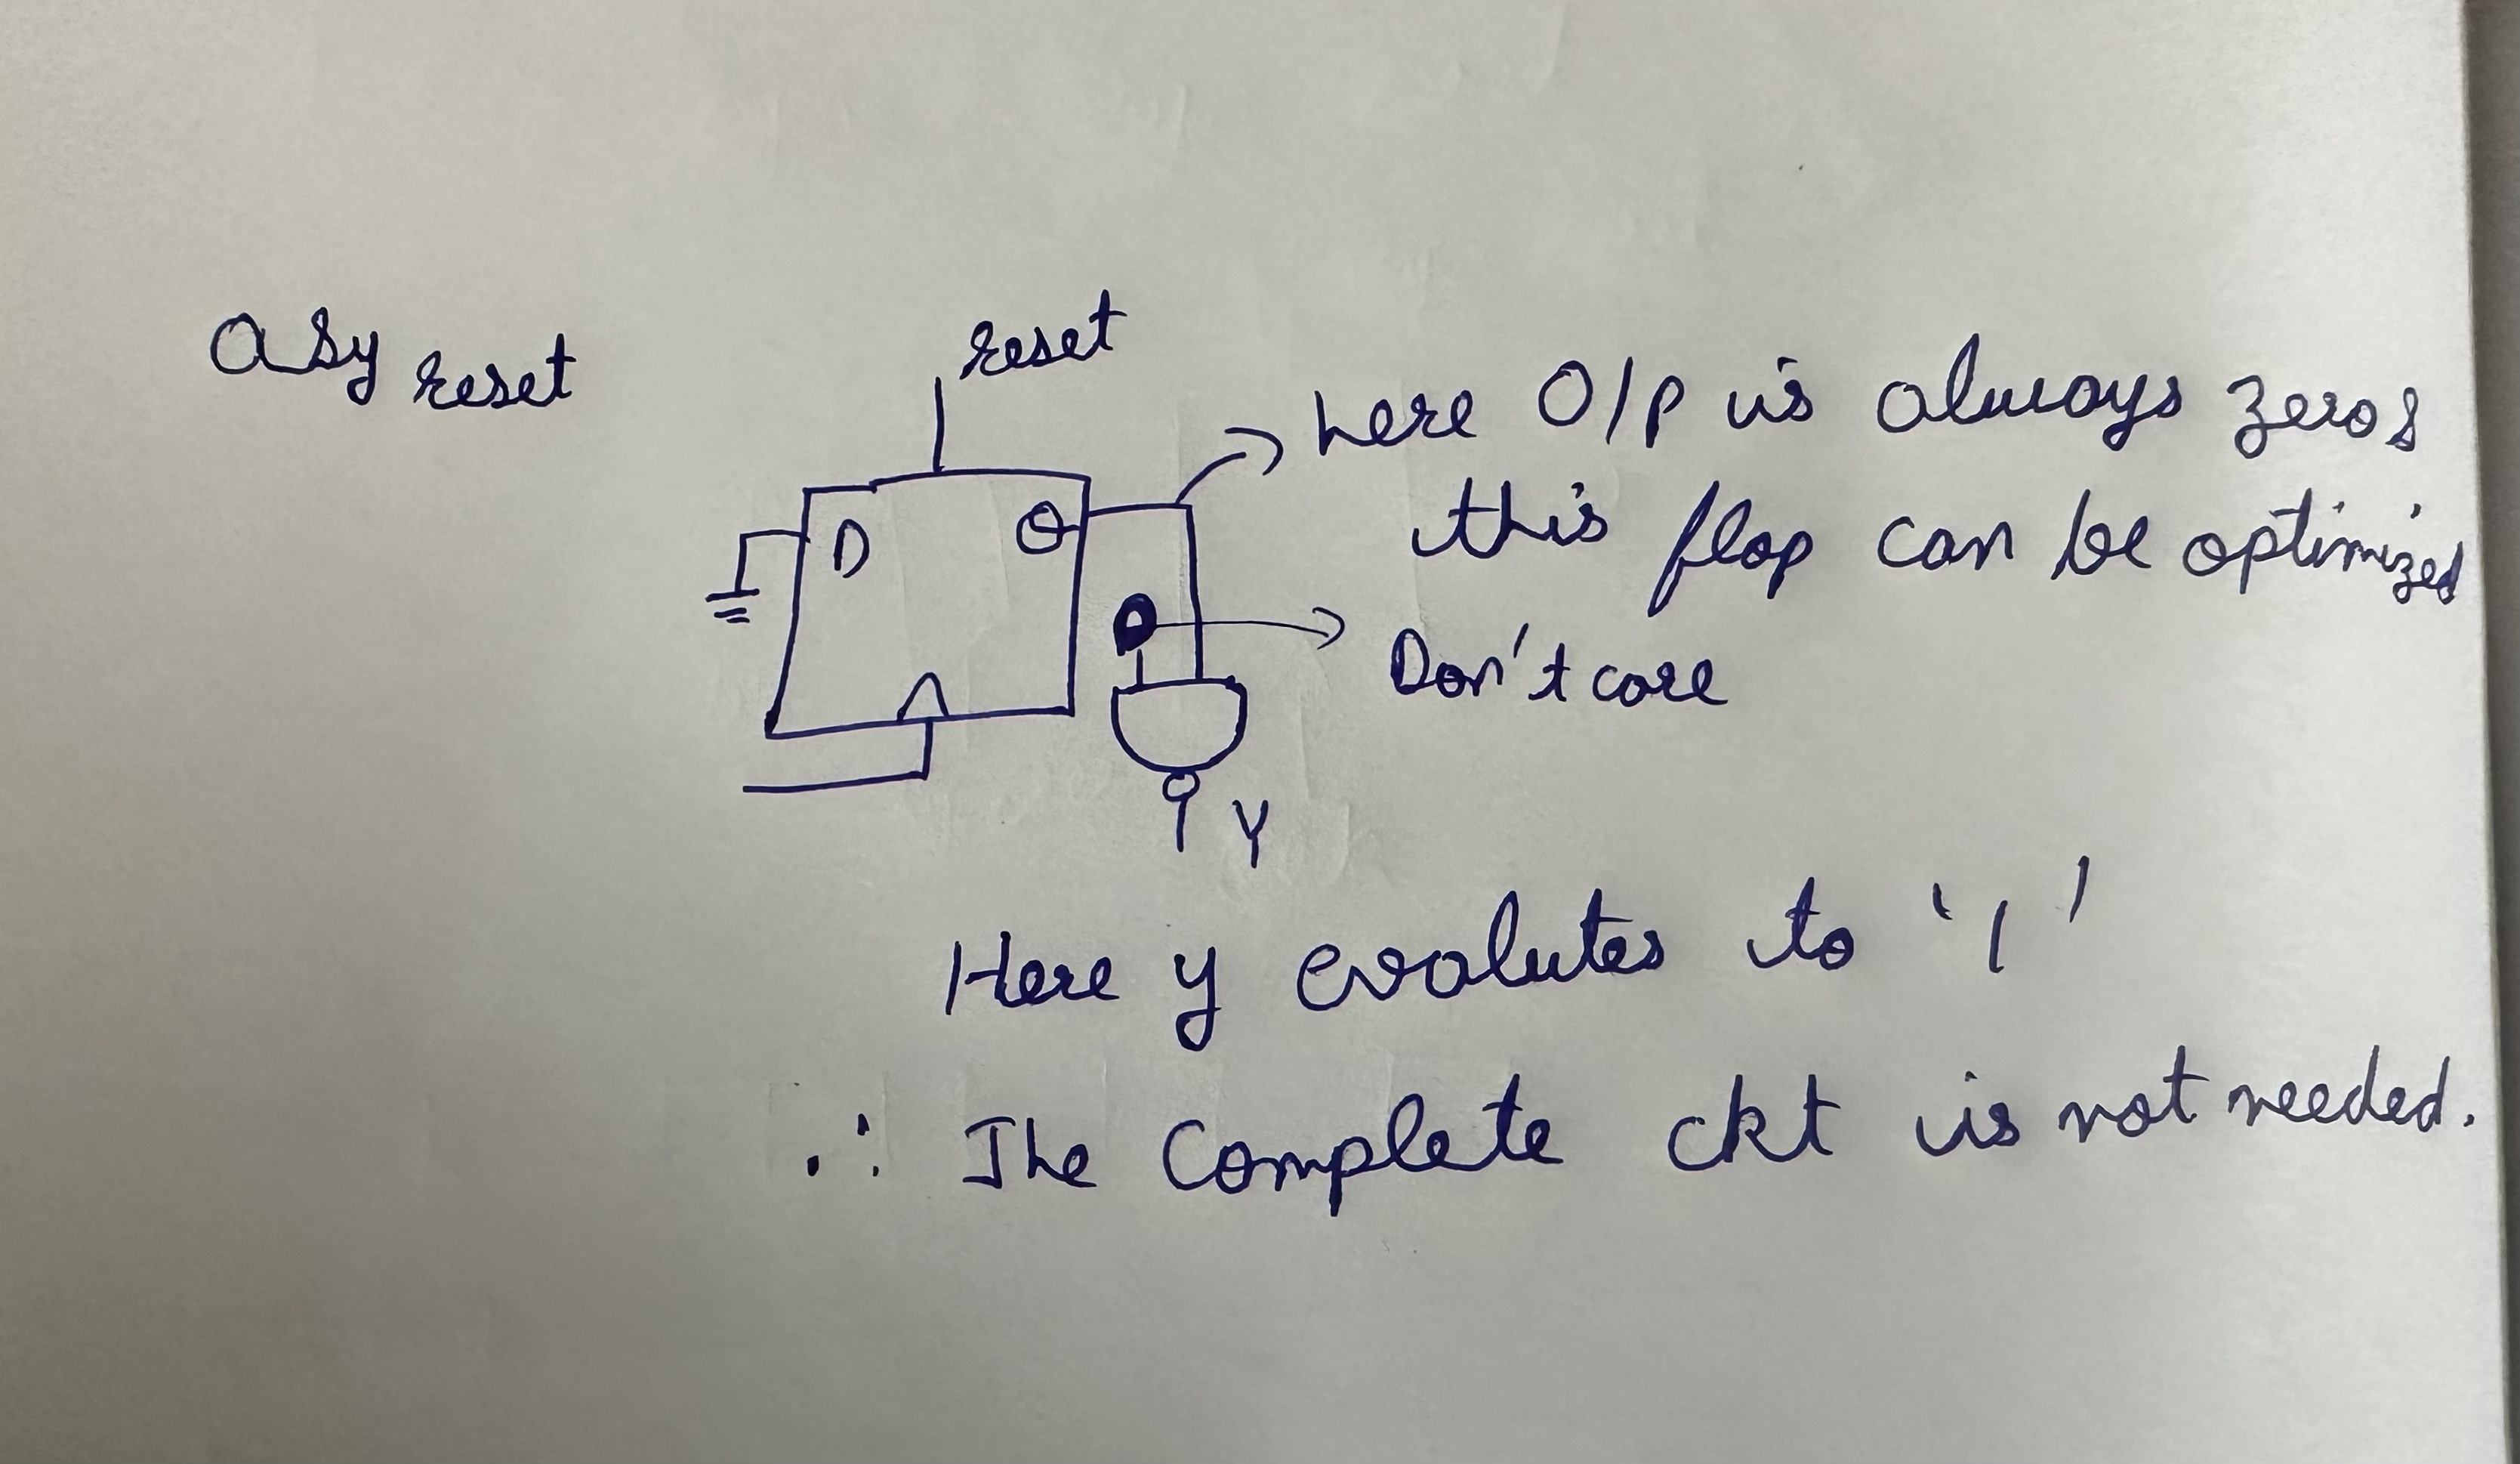 asy reset
reset
here O/P is always zeros
this flop can be optimized
D
Q
Don't care
Y
Here y evalutes to '1'
∴ The Complete ckt is not needed.